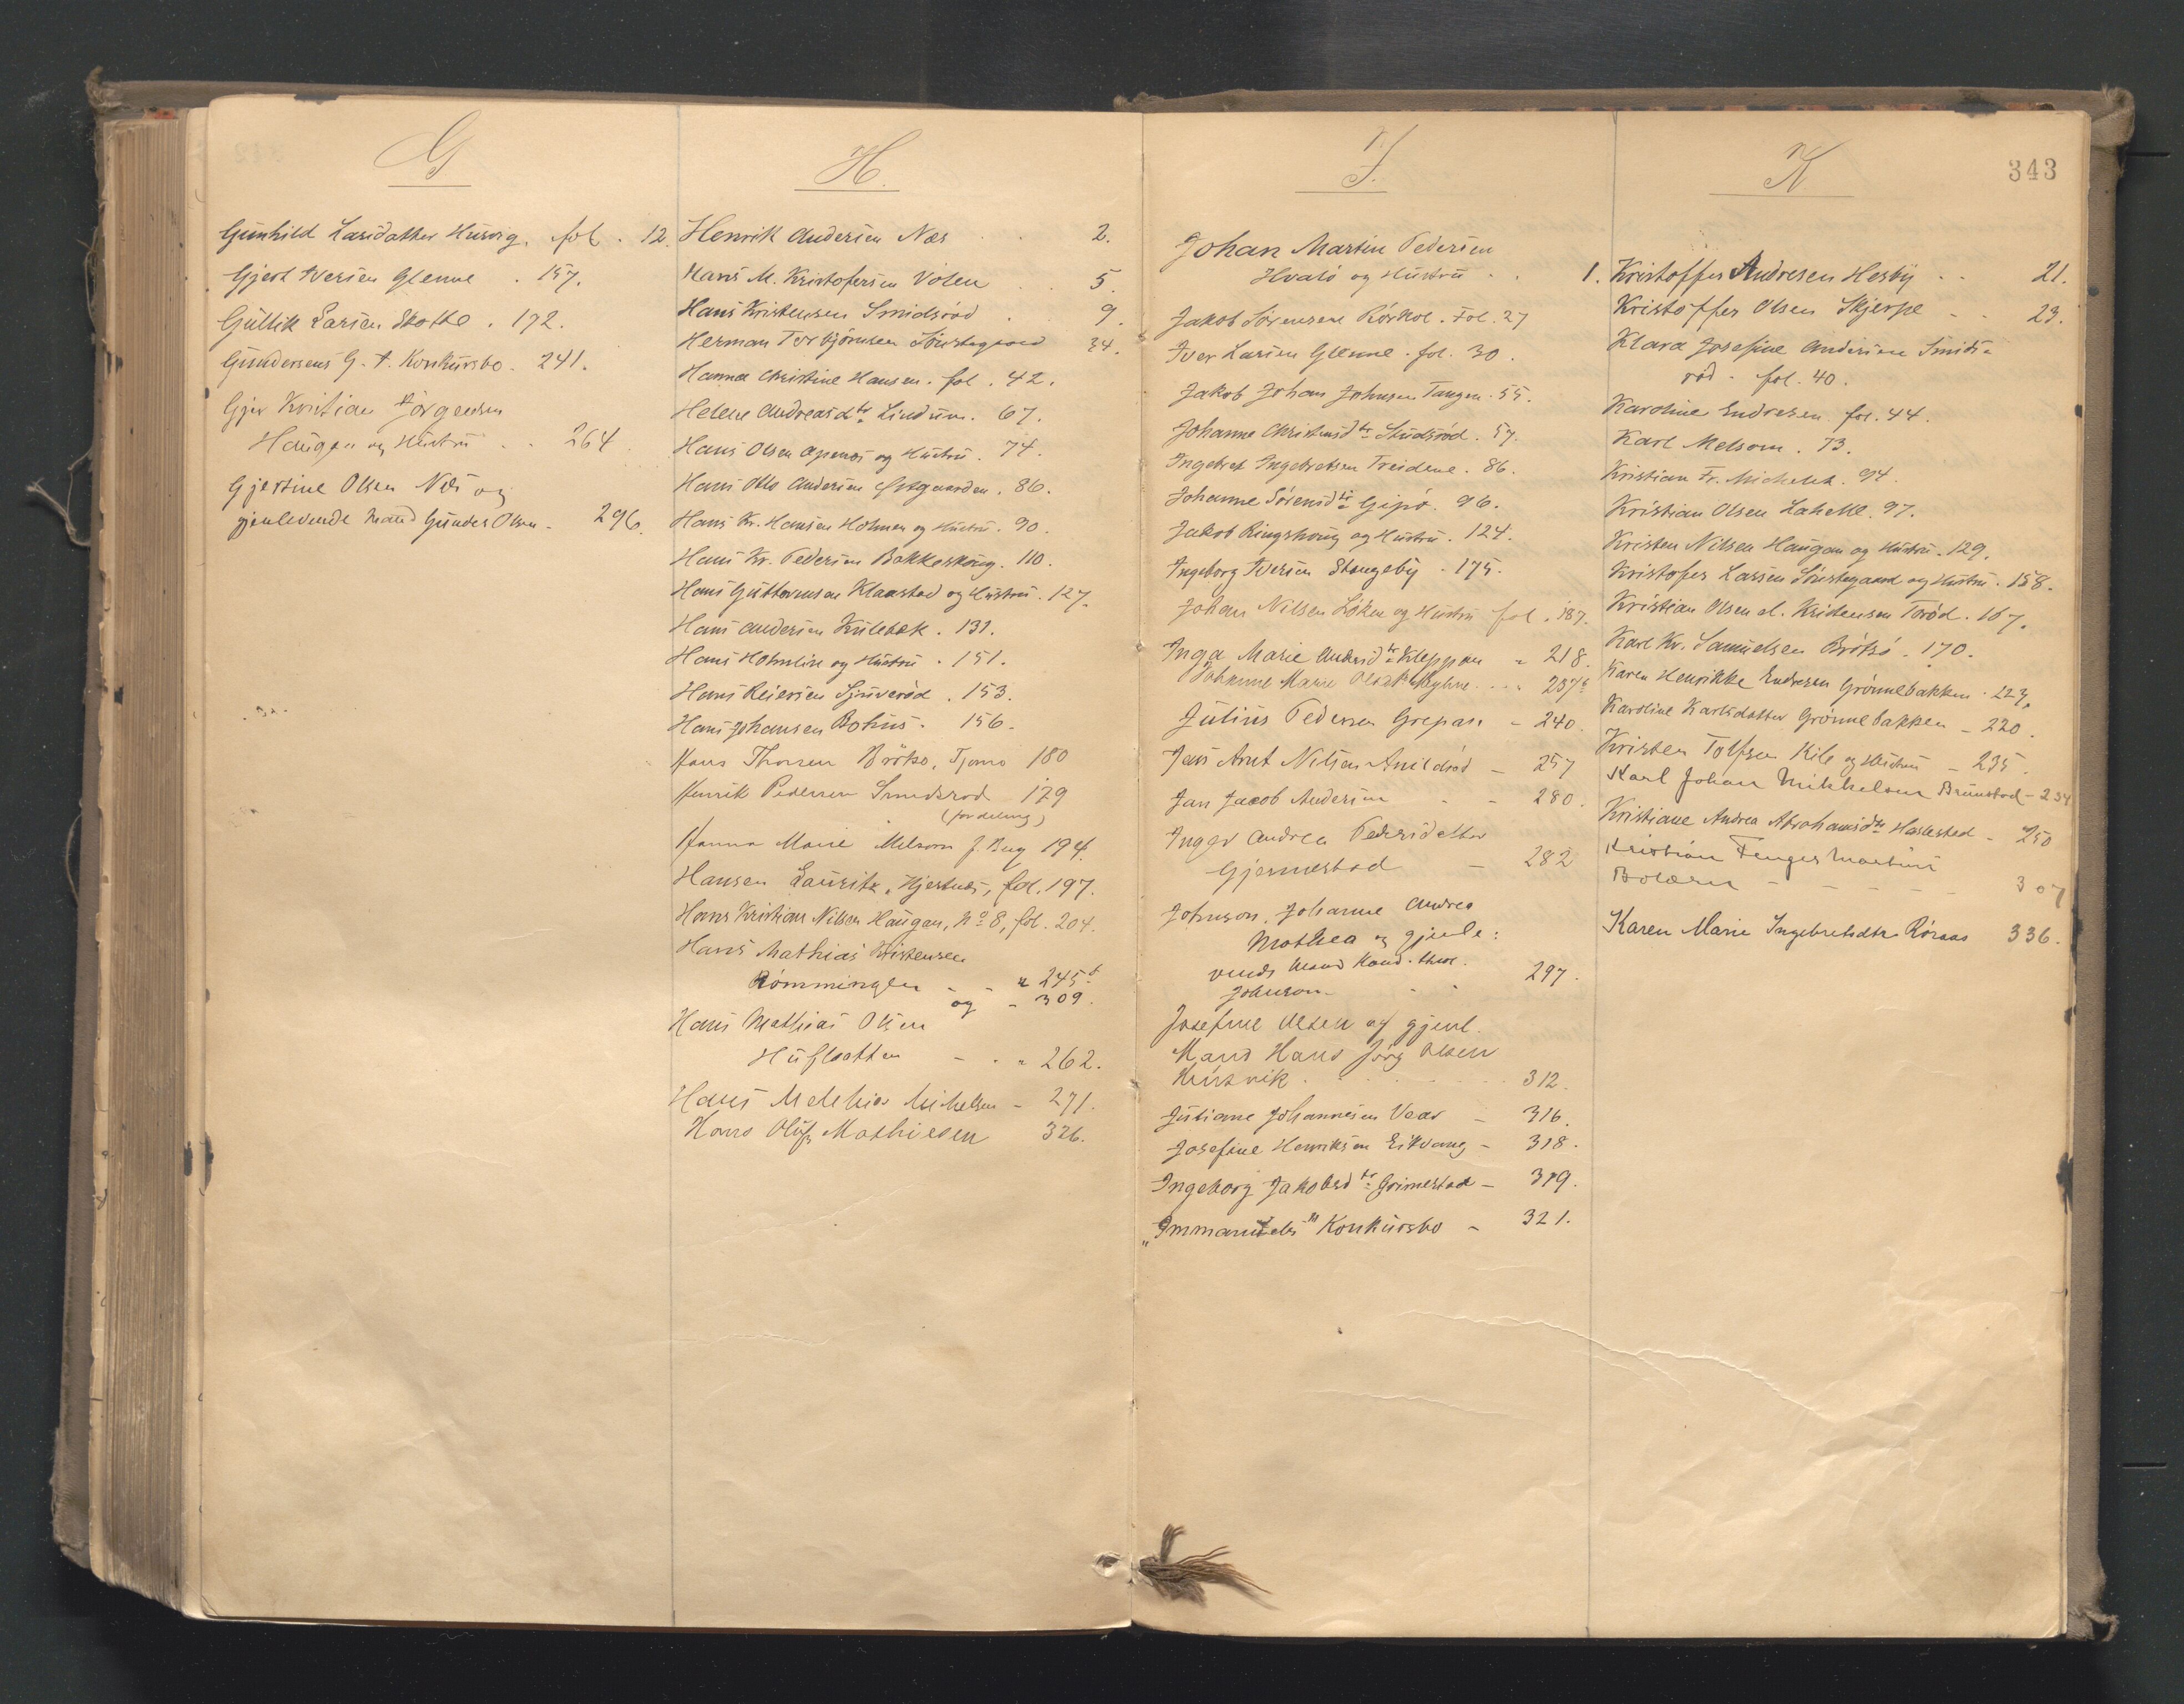 G
Gunhild Larsdatter Husvig. fol. 12.
Gjert Iversen Glenne . 157.
Gullik Larsen Skotte . 172.
Gundersens G. A. Konkursbo. 241.
Gjer Kristian Jørgensen
Haugan og Hustru . . 264
Gjertine Olsen Næs og
gjenlevende Mand Gunder Olsen - 296.
H.
Henrik Andersen Næs . . 2.
Hans M. Kristofersen Volen . . 5.
Hans Kristensen Smidsrød . 9.
Herman Torbjørnsen Sønstegaard 34.
Hanna Christine Hansen. fol. 42.
Helene Andreasdtr Lindrum. 67.
Hans Olsen Apenæs og Hustru. 74.
Hans Otto Andersen Østgaarden. 86.
Hans Kr. Hansen Holmen og Hustru. 90.
Hans Kr. Pedersen Bakkeskoug. 110.
Hans Guttormsen Klaastad og Hustru. 127.
Hans Andersen Kulebæk. 131.
Hans Holmlin og Hustru . 151.
Hans Reiersen Sjuverød . 153.
Hans Johansen Bohus. 156.
Hans Thorsen Brøtsø, Tjømø 180
Henrik Pedersen Smidsrød 179
(fordeling)
Hanna Marie Melsom f. Bug 194.
Hansen Lauritz, Hjertnæs, fol. 197.
Hans Kristian Nilsen Haugan, No 8, fol. 204.
Hans Mathias Kristensen
Rømmingen - - " 245b
og - 309.
Hans Mathias Olsen
Huflaatten - . " 262.
Hans Mathias Mikelsen - 271.
Hans Oluf Mathiesen 326.
I.
Johan Martin Pedersen
Hvalø og Hustru . . 1.
Jakob Sørensen Røskol. Fol. 27
Iver Larsen Glenne. fol. 30.
Jakob Johan Johnsen Tangen. 55.
Johanne Christensdtr Studsrød. 57.
Ingebret Ingebretsen Treidene. 86.
Johanne Sørensdtr Gipø. 96.
Jakob Ringshoug og Hustru. 124.
Ingeborg Iversen Stangeby . 175.
Johan Nilsen Løken og Hustru fol. 187.
Inga Marie Andersdtr Kleppan " 218.
Johanne Marie Olsdtr . . . 237b
Julius Pedersen Grepan - 240.
Jens Arnt Nilsen Smidsrød - 257
Jan Jacob Andersen - - 280.
Inger Andrea Pedersdatter
Gjennestad - 282
Johnson, Johanne Andrea
Mathea og gjenle:
vende Mand Kand. theol.
Johnson - - - 297.
Josefine Olsen og gjenl.
Mand Hans Jørg Olsen
Husvik . . . . 312.
Juliane Johannesen Vear - 316.
Josefine Henriksen Eikvang - 318.
Ingeborg Jakobsdtr Grimestad - 319.
"Immanuels" Konkursbo - 321.
K
343
Kristoffer Andresen Hesby . . 21.
Kristoffer Olsen Skjerpe - . 23.
Klara Josefine Andersen Smids=
rød . fol. 40.
Karoline Endresen. fol. 44.
Karl Melsom . 73.
Kristian Fr. Michelet. 94.
Kristian Olsen Lahelle. 97.
Kristen Nilsen Haugan og Hustru. 129.
Kristofer Larsen Sønstegaard og Hustru. 158.
Kristian Olsen el. Kristensen Torød. 167.
Karl Kr. Samuelsen Brøtsø. 170.
Karen Henrikke Endresen Grønnebakken. 223.
Karoline Karlsdatter Grønnebakken - 220.
Kristen Tolfsen Kile og Hustru - 235.
Karl Johan Mikkelsen Brunstad - 234
Kristiane Andrea Abrahamsdtr Haslestad - 250
Kristian Fenger Martini
Bolærn - - - - - 307
Karen Marie Ingebretsdtr Røraas 336.